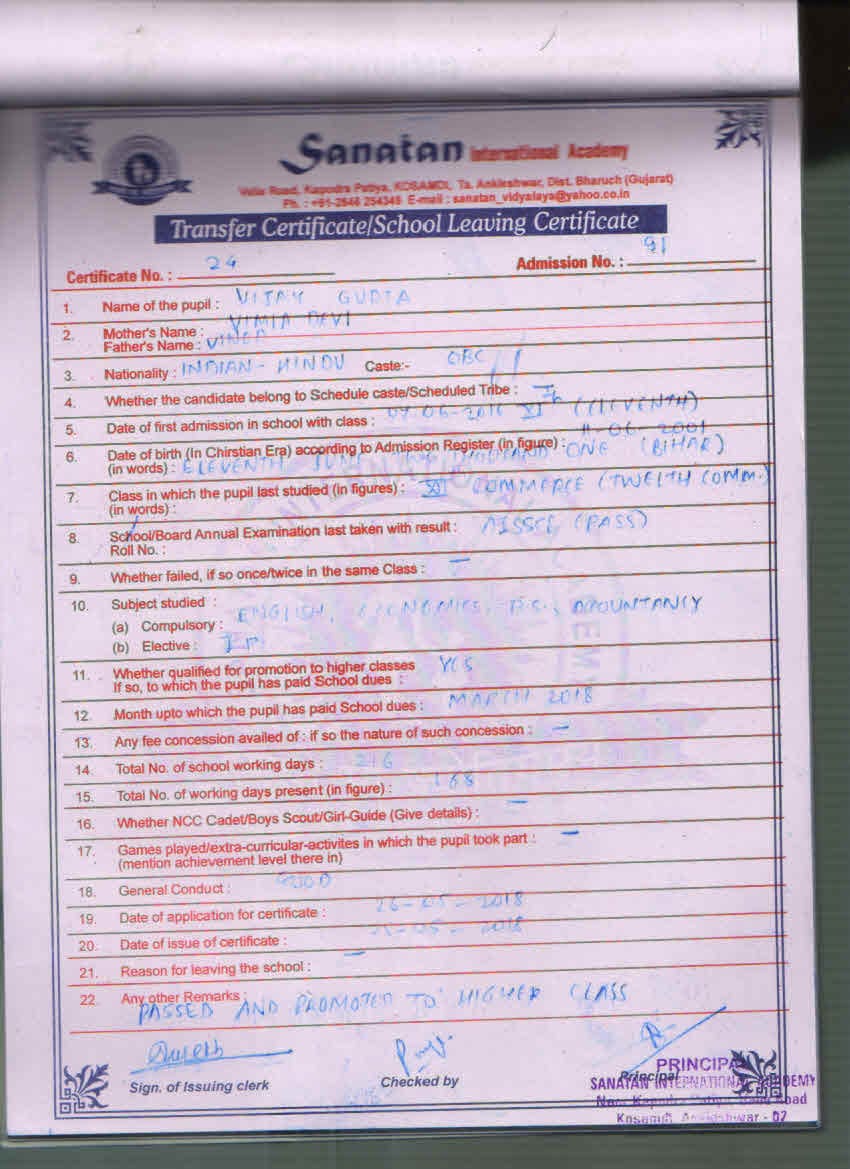 Sanatan International Academy
Valia Road, Kapodra Patiya, KOSAMDI, Ta. Ankleshwar, Dist. Bharuch (Gujarat)
Ph. : +91-2646 254345 E-mail : sanatan_vidyalaya@yahoo.co.in
Transfer Certificate/School Leaving Certificate
Certificate No. : 24 Admission No. : 91
1. Name of the pupil : VIJAY GUPTA
2. Mother's Name : VIMLA DEVI
Father's Name : VINOD
3. Nationality : INDIAN - HINDU Caste:- OBC
4. Whether the candidate belong to Schedule caste/Scheduled Tribe :
5. Date of first admission in school with class : 07-06-2016 XI th (ELEVENTH)
6. Date of birth (In Chirstian Era) according to Admission Register (in figure) : 11-06-2001
(in words) : ELEVENTH JUNE TWO THOUSAND ONE (BIHAR)
7. Class in which the pupil last studied (in figures) : XII COMMERCE (TWELTH COMM.)
(in words) :
8. School/Board Annual Examination last taken with result : AISSCE (PASS)
Roll No. :
9. Whether failed, if so once/twice in the same Class : -
10. Subject studied :
(a) Compulsory : ENGLISH, ECONOMICS, B.S., ACCOUNTANCY
(b) Elective : I.P.
11. Whether qualified for promotion to higher classes YES
If so, to which the pupil has paid School dues :
12. Month upto which the pupil has paid School dues : MARCH 2018
13. Any fee concession availed of : if so the nature of such concession : -
14. Total No. of school working days : 216
15. Total No. of working days present (in figure) : 168
16. Whether NCC Cadet/Boys Scout/Girl-Guide (Give details) : -
17. Games played/extra-curricular-activites in which the pupil took part : -
(mention achievement level there in)
18. General Conduct : GOOD
19. Date of application for certificate : 26-05-2018
20. Date of issue of certificate : -05-2018
21. Reason for leaving the school : -
22. Any other Remarks :
PASSED AND PROMOTED TO HIGHER CLASS
Sign. of Issuing clerk Checked by Principal
PRINCIPAL
SANATAN INTERNATIONAL ACADEMY
Near Kapodra Patiya, Valia Road
Kosamdi, Ankleshwar - 02